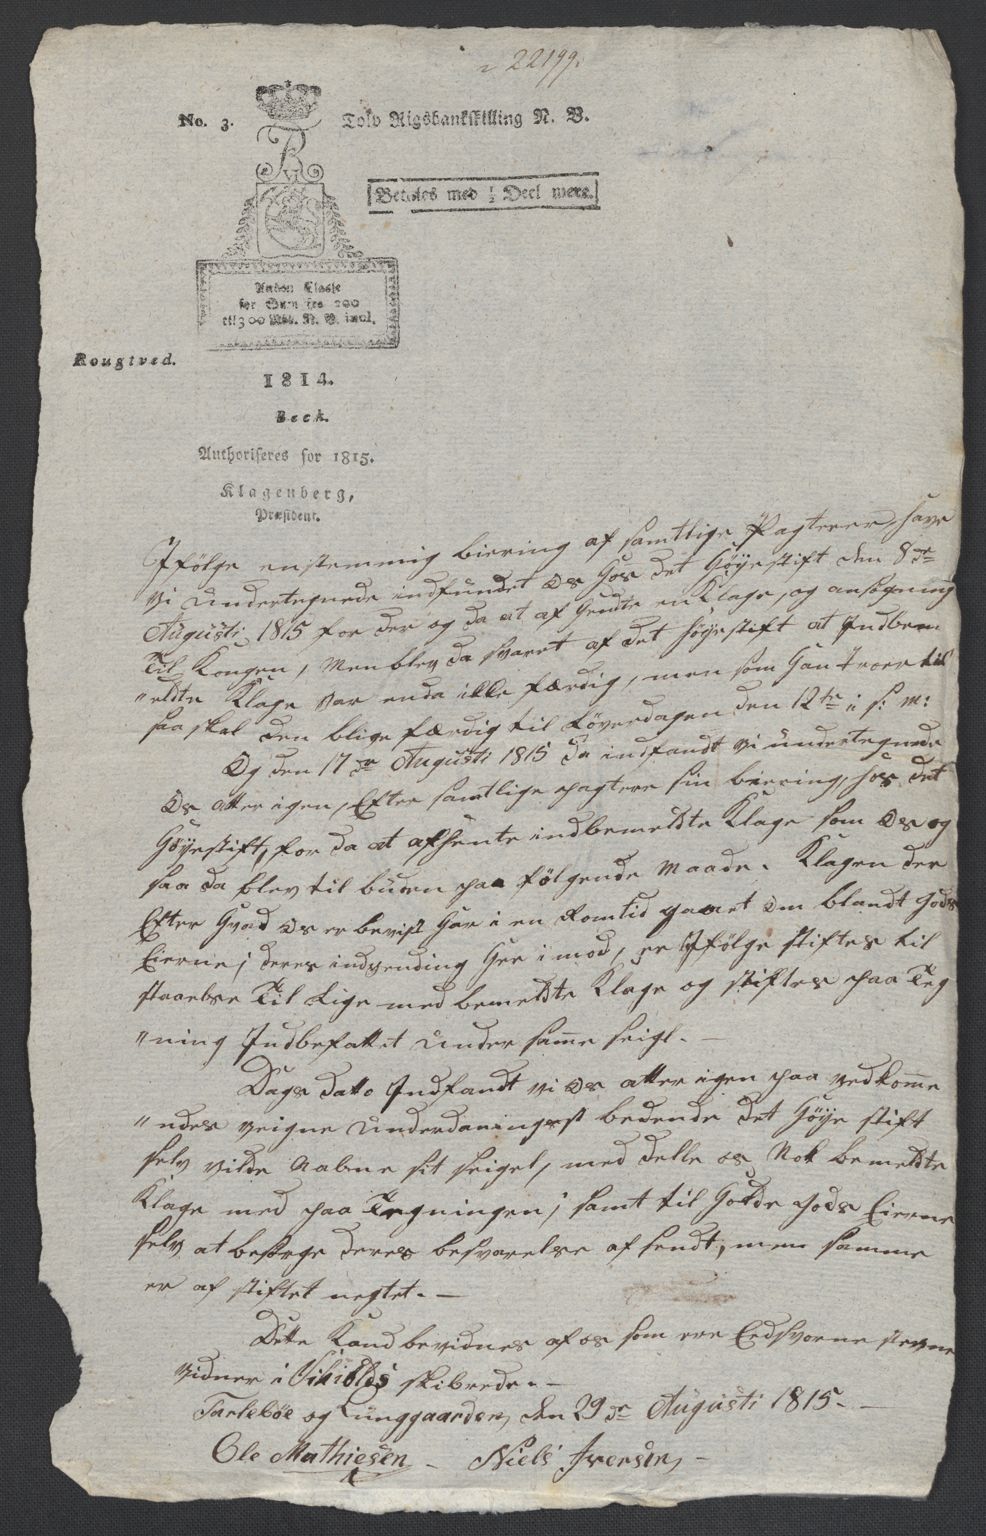 22199.
No. 3. Tolv Rigsbankskilling N. V.
Betales med ½ Deel mere.
Anden Classe
for Sum fra 200
til 300 Rbd. N. V. incl.
Rougtved.
1814.
Beck.
Authoriseres for 1815.
Klagenberg,
Præsident.
Ifölge enstemmig biering af samtlige Pagterer, have
vi undertegnede indfundet os hos det Höyestift den 8de
Augusti 1815 for der og da at af hendte en Klage, og ansögning
Til Kongen, Men blev da svaret af det höyestift at Indbem
"eldte Klage var enda ikke færdig, men som han Troer til
saa skal den blive færdig til Löverdagen den 12te i s: m:
Og den 17de Augusti 1815 da indfandt vi undertegnede
Os atter igen, Efter samtlige pagtere sin biering, hos det
Höyestift, for da at afhente indbemeldte Klage som Os og
saa da blev til buden paa fölgende Maade. Klagen der
Efter hvad Os er bevist har i en Romtid gaaet Om blandt gods
Eierne; deres indvending her i mod, er Ifölge stiftes til
staaelse Til Lige med bemeldte Klage og stiftes paa Teg
"ning Indbefattet under samme seigl. —
Dags Datto Indfandt vi Os atter igen paa vedkomme
"ndes veigne underdaningest bedende det Höye stift
selv vilde Aabne sit seigel, med delle os Nok bemeldte
Klage med paa Tegningen; samt til holde gods Eierne
selv at besörge deres besvarelse af sendt, men samme
er af stiftet negtet. —
Dette Kand bevidnes af os som ere Eedsvorne stevne
vidner i skibrede. —
Tarleböe og Lunggaarden, den 29de Augusti 1815. —
Ole Mathiesen — Niels Iversen, —